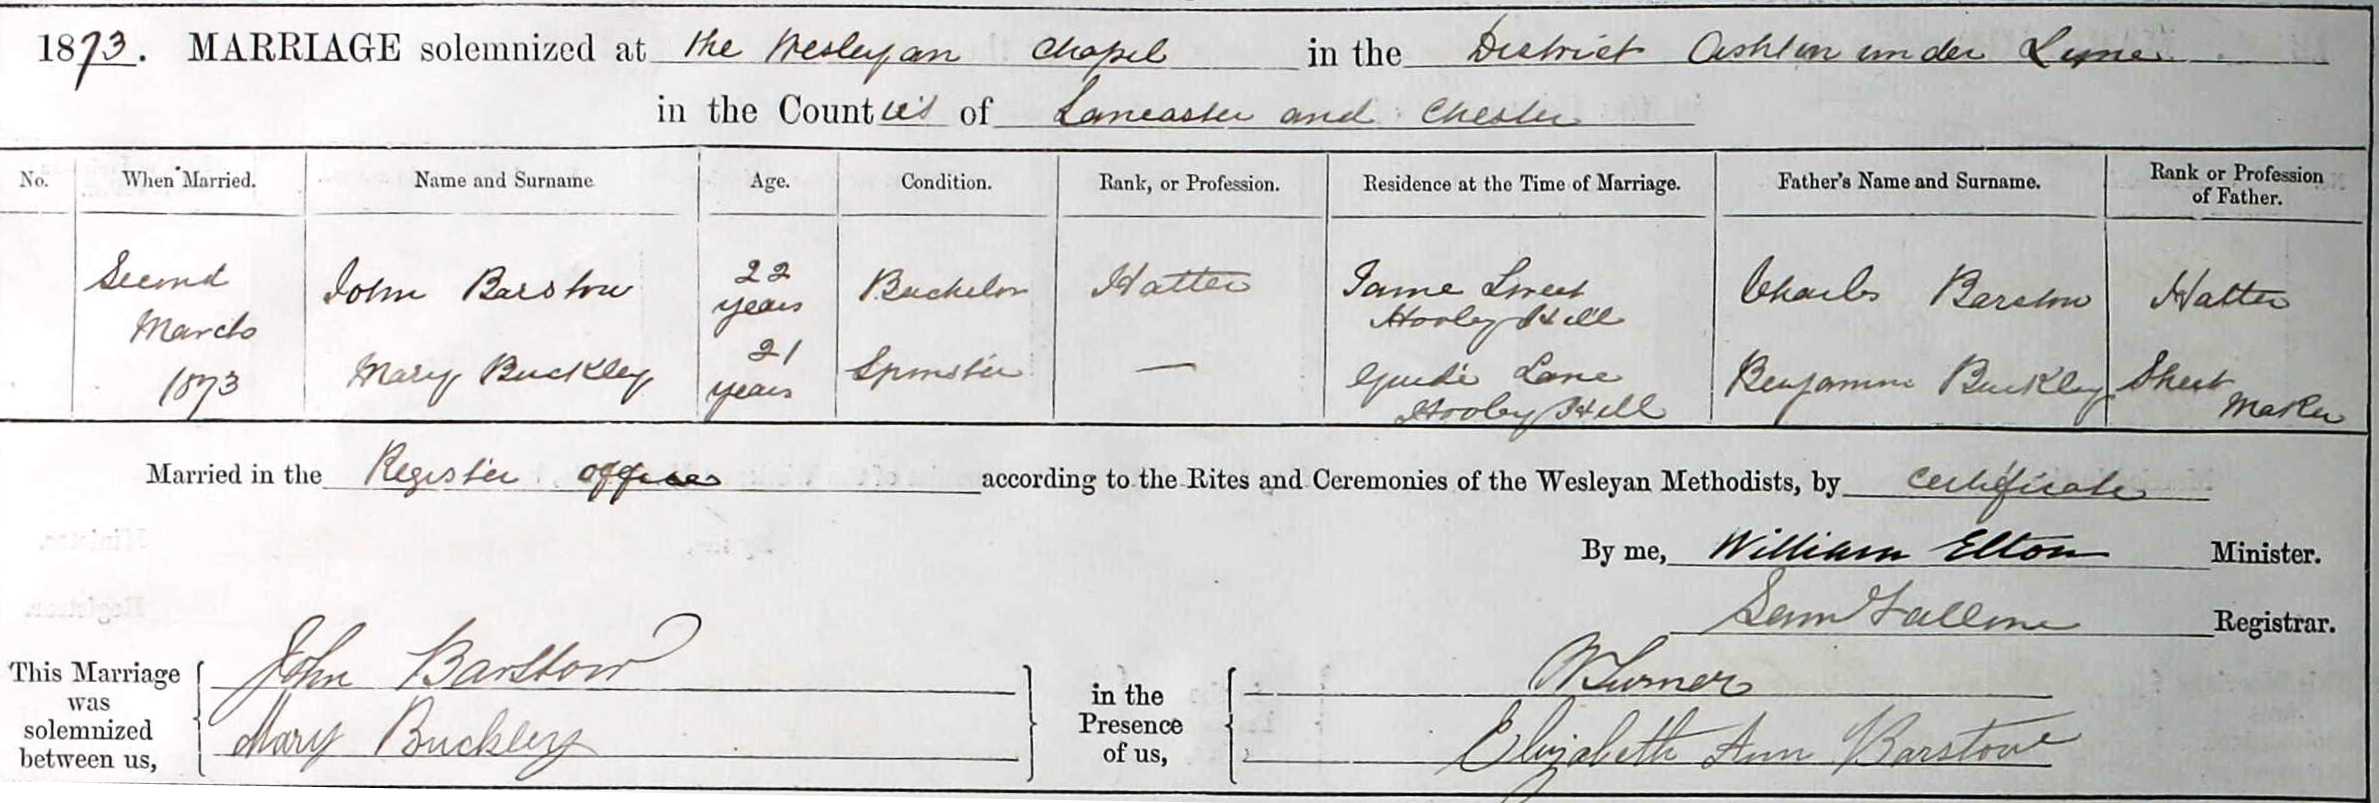 1873. MARRIAGE solemnized at the Wesleyan Chapel in the District Ashton under Lyne
in the Counties of Lancaster and Chester
No. When Married. Name and Surname Age. Condition. Rank, or Profession. Residence at the Time of Marriage. Father's Name and Surname. Rank or Profession of Father.
Second March 1873
John Barstow 22 years Bachelor Hatter Tame Street Hooley Hill Charles Barstow Hatter
Mary Buckley 21 years Spinster — Guide Lane Hooley Hill Benjamin Buckley Maker
Married in the Register Office according to the Rites and Ceremonies of the Wesleyan Methodists, by Certificate
By me, William Elton Minister.
Saml Registrar.
This Marriage was solemnized between us, John Barstow
Mary Buckley
in the Presence of us, W Turner
Elizabeth Ann Barstow